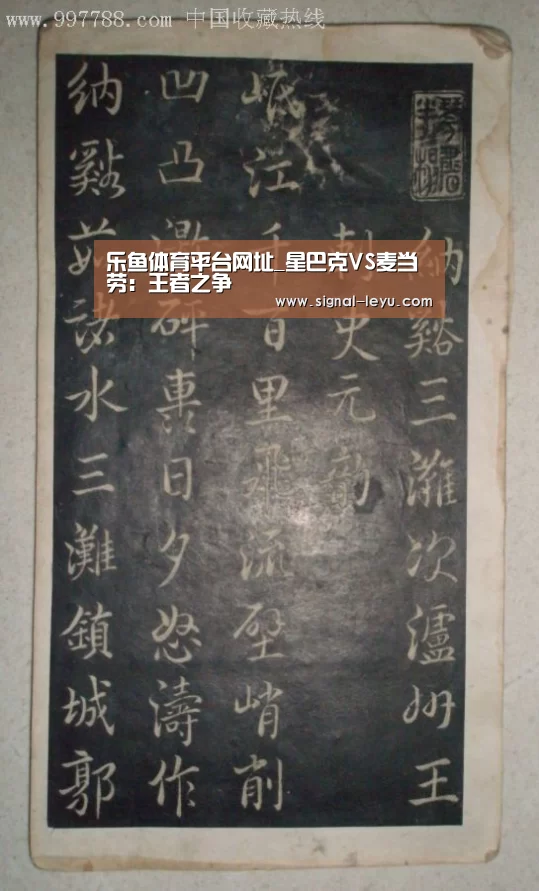 www.997788.com 中国收藏热线
納谿三灘次瀘州王
刺史元韵
岷江千百里飛流壁峭削
凹凸激碎轟日夕怒濤作
納谿安諸水三灘鎮城郭
乐鱼体育平台网址_星巴克VS麦当
劳：王者之争
www.signal-leyu.com